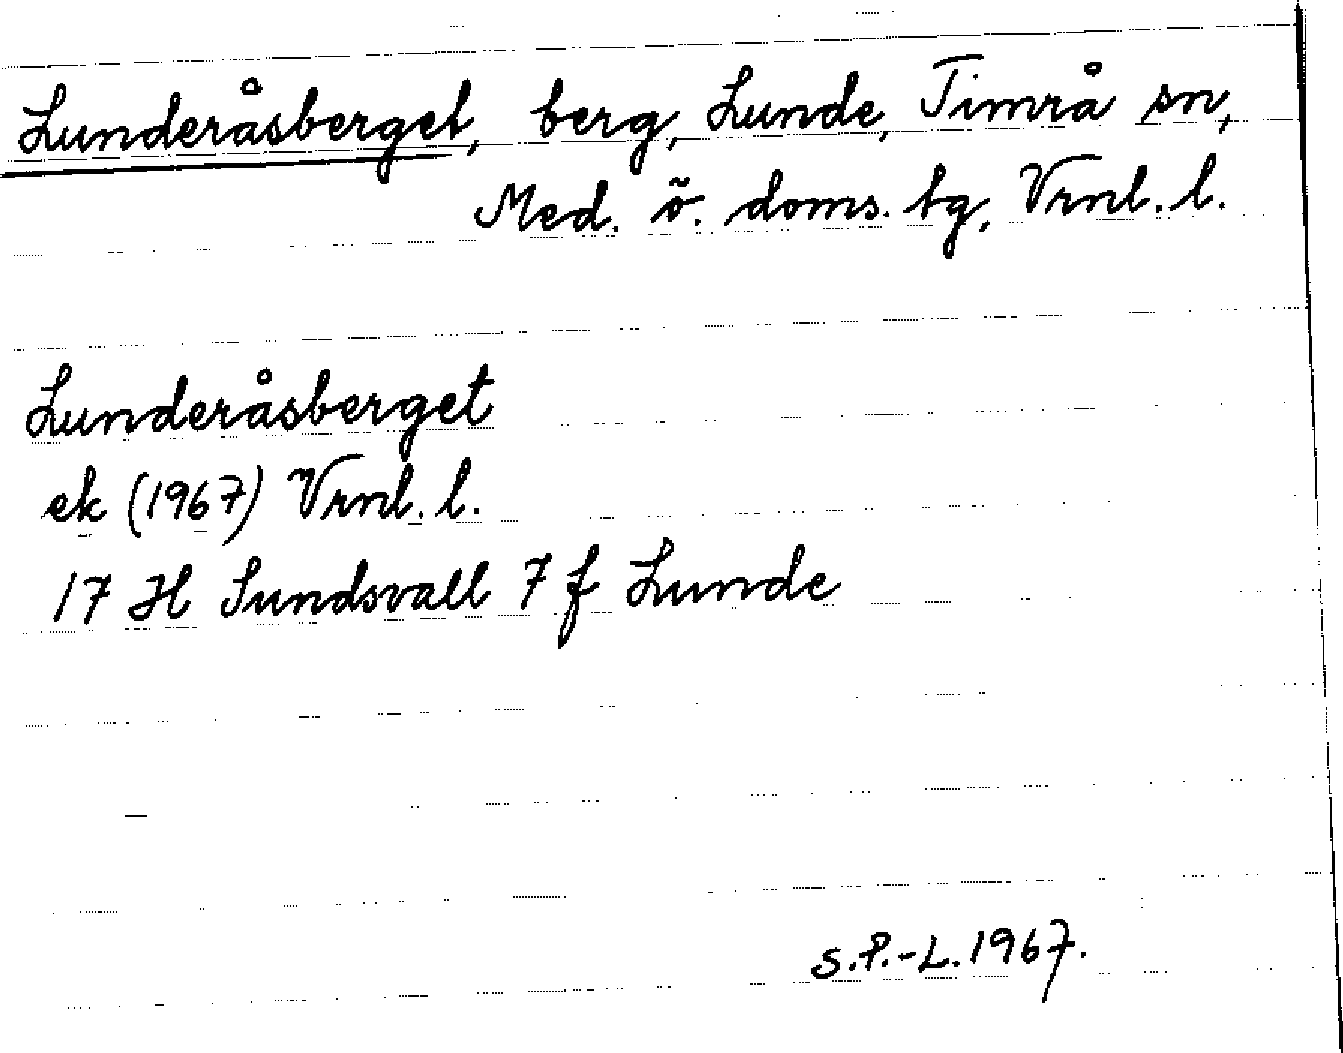 Lunderåsberget, berg, Lunde, Timrå sn,
Med. ö. doms. tg, Vrnl. l.
Lunderåsberget
ek (1967) Vrnl. l.
17 H Sundsvall 7 f Lunde
S.P.-L. 1967.